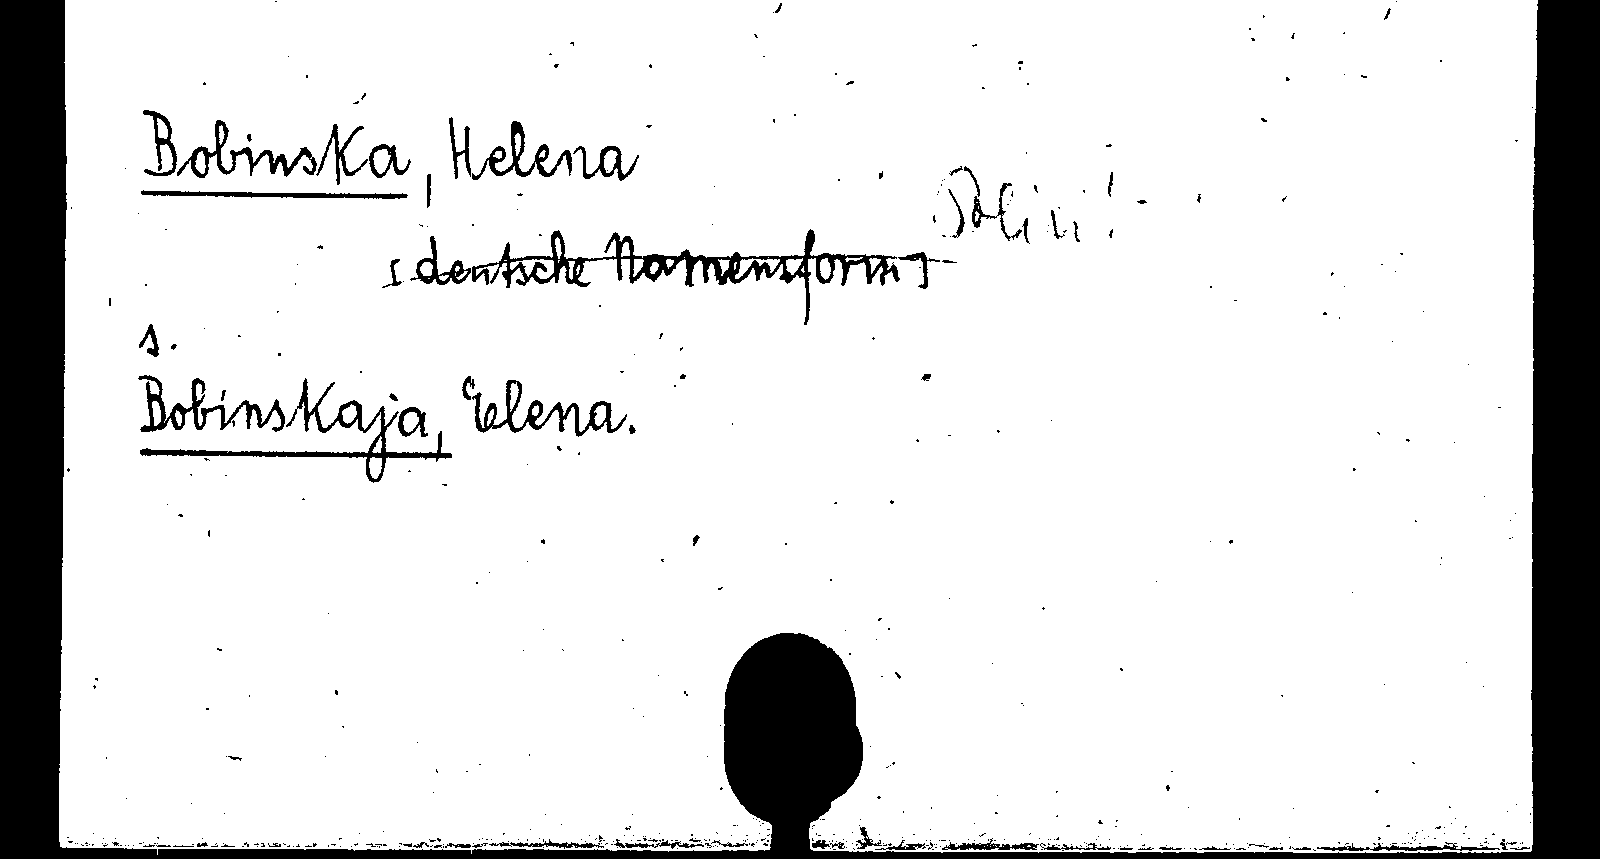 Bobinska, Helena
[deutsche Namensform]
s.
Bobinskaja, Elena.